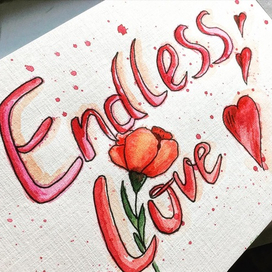 Endless
Love